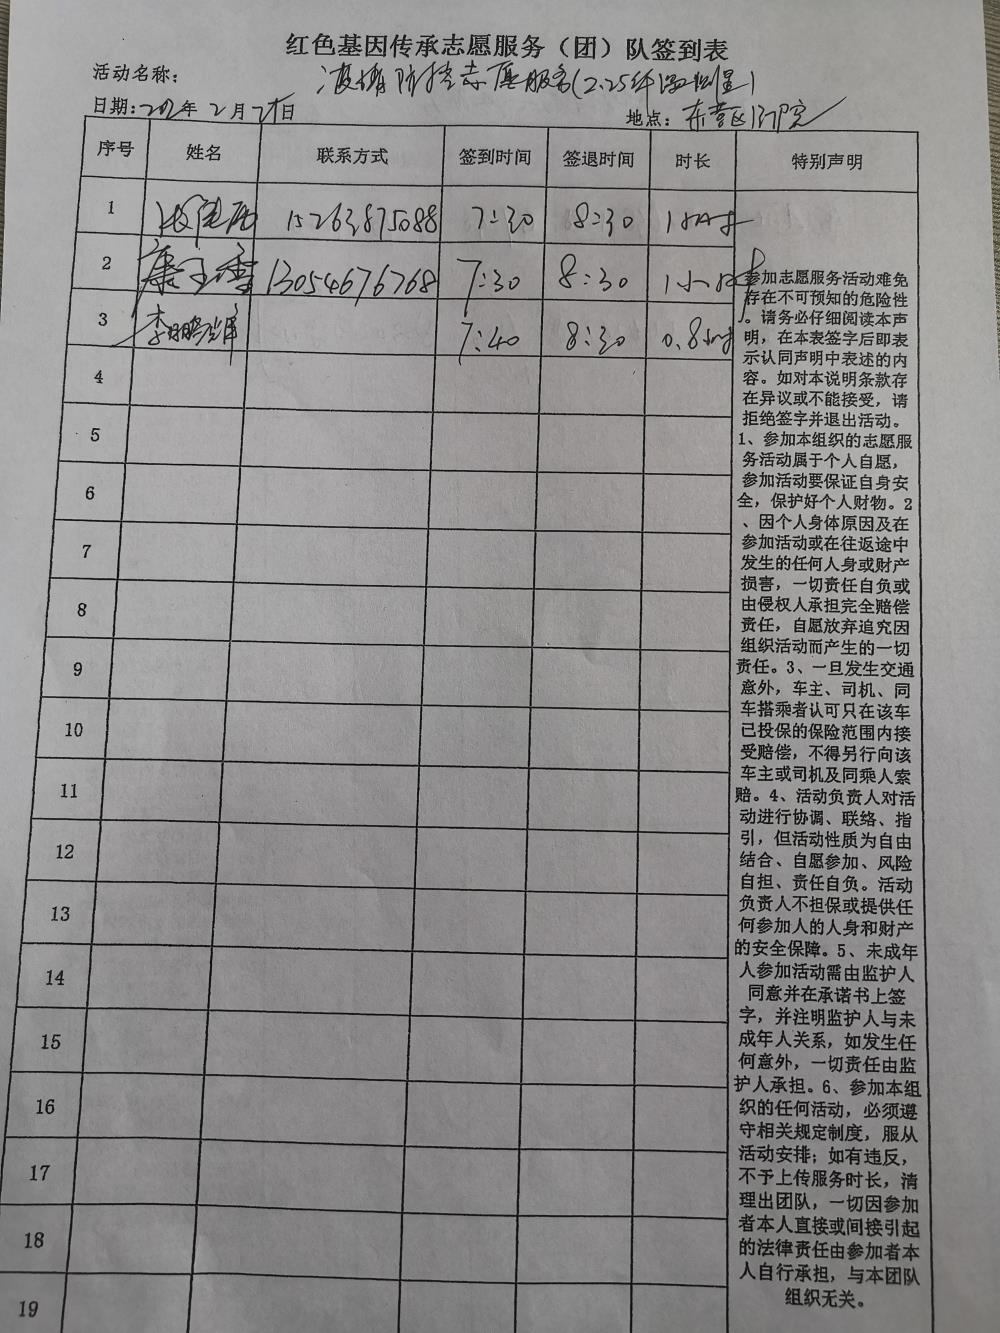 红色基因传承志愿服务（团）队签到表
活动名称： 疫情防控志愿服务(2.25体温测量)
日期: 年 2 月 25日 地点： 东营区人民医院
序号 姓名 联系方式 签到时间 签退时间 时长 特别声明
1 15263875088 7:30 8:30 1小时
2 康玉香 13054676768 7:30 8:30 1小时
3 7:40 8:30 0.8小时
4
5
6
7
8
9
10
11
12
13
14
15
16
17
18
19
参加志愿服务活动难免
存在不可预知的危险性
。请务必仔细阅读本声
明，在本表签字后即表
示认同声明中表述的内
容。如对本说明条款存
在异议或不能接受，请
拒绝签字并退出活动。
1、参加本组织的志愿服
务活动属于个人自愿，
参加活动要保证自身安
全，保护好个人财物。2
、因个人身体原因及在
参加活动或在往返途中
发生的任何人身或财产
损害，一切责任自负或
由侵权人承担完全赔偿
责任，自愿放弃追究因
组织活动而产生的一切
责任。3、一旦发生交通
意外，车主、司机、同
车搭乘者认可只在该车
已投保的保险范围内接
受赔偿，不得另行向该
车主或司机及同乘人索
赔。4、活动负责人对活
动进行协调、联络、指
引，但活动性质为自由
结合、自愿参加、风险
自担、责任自负。活动
负责人不担保或提供任
何参加人的人身和财产
的安全保障。5、未成年
人参加活动需由监护人
同意并在承诺书上签
字，并注明监护人与未
成年人关系，如发生任
何意外，一切责任由监
护人承担。6、参加本组
织的任何活动，必须遵
守相关规定制度，服从
活动安排；如有违反，
不予上传服务时长，清
理出团队，一切因参加
者本人直接或间接引起
的法律责任由参加者本
人自行承担，与本团队
组织无关。